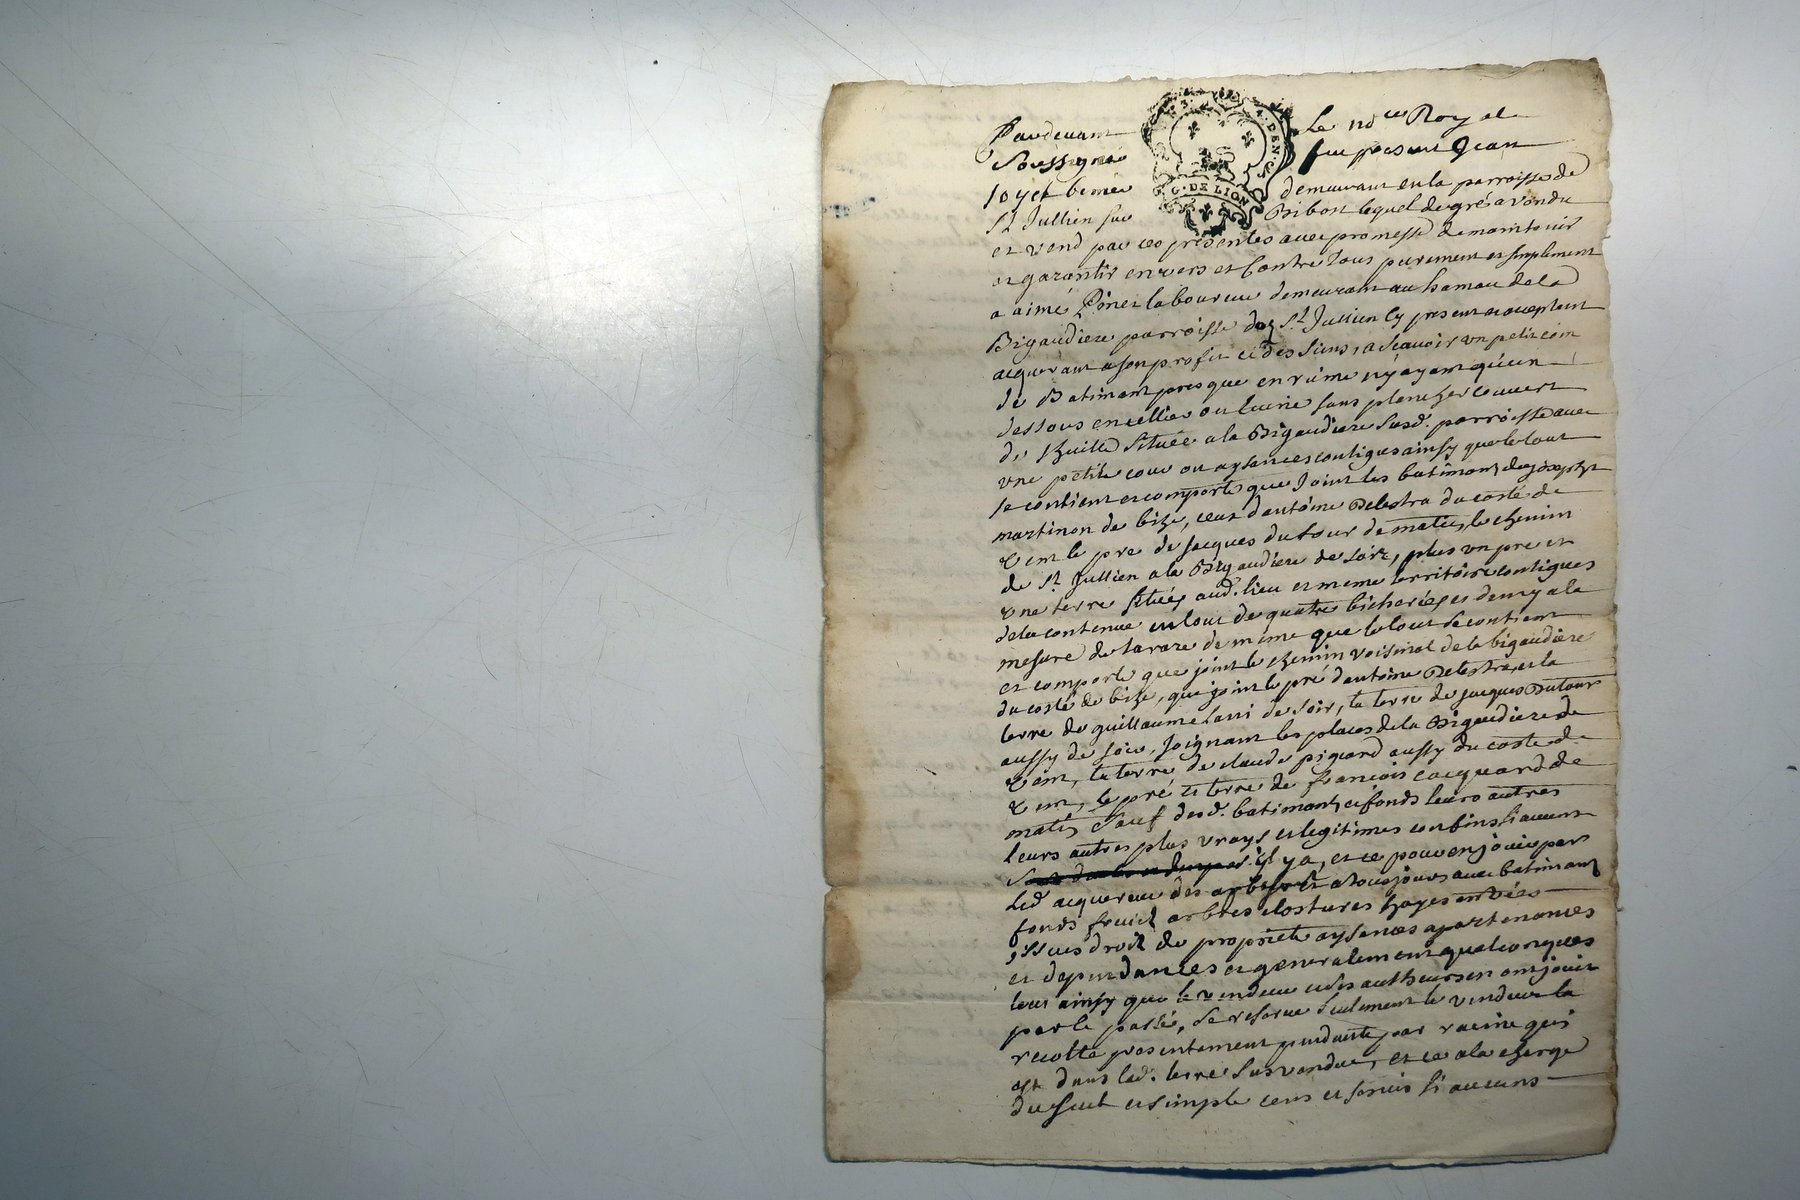 Pardevant Le no.re Royal
Soussigné fut present Jean
demeurant en la parroisse de
St Jullien sur Bibost lequel de gré a vendu
et vend par ces presentes avec promesse de maintenir
et garantir envers et Contre tous purement et simplement
a aimé laboureur demeurant au hameau de la
Bigaudiere parroisse dud St Jullien Cy present et acceptant
acquerant a son profit et des siens, a Scavoir un petit coin
de Batiment presque en ruine n'y ayant qu'un
dessous en cellier ou sans plancher couvert
de thuille située a la Bigaudiere susd. parroisse avec
une petite cour ou aysances contigues ainsy que le tout
se contient et comporte que Joint les batiments de joseph
martinon de bize, ceux d'antoine Delestra du costé de
vent le pre de Jacques dutour de matin, le chemin
de St Jullien a la Bigaudiere de soir, plus un pre et
une terre situés aud. lieu et meme territoire contigues
de la contenue en tout de quatre bicherées et demy a la
mesure de tarare de meme que le tout se contient
et comporte que joint le chemin voisinal de la bigaudiere
du costé de bize, que joint le pré d'antoine Delestra, et la
terre de guillaume de soir, la terre de jacques Dutour
aussy de soir, Joignant les places de la Bigaudiere de
vent, la terre de claude pignard aussy du costé de
vent, le pré et terre de francois cacquard de
matin Sauf desd. batiments et fonds leurs autres
leurs autres plus vrays et legitimes confins si aucuns
il y a, et ce pour en jouir par
led acquereur des a toujours avec batiments
fonds fruits arbres clostures hayes entrées
issues droits de propriété aysances apartenances
et dependances et generalement quelconques
tout ainsy que le vendeur et ses autheurs en ont jouit
par le passé, se reserve seulement le vendeur la
recolte presentement pendante par racine qui
est dans lad. terre susvendue, et ce a la charge
du seul et simple cens et servis si aucuns
G. DE LION